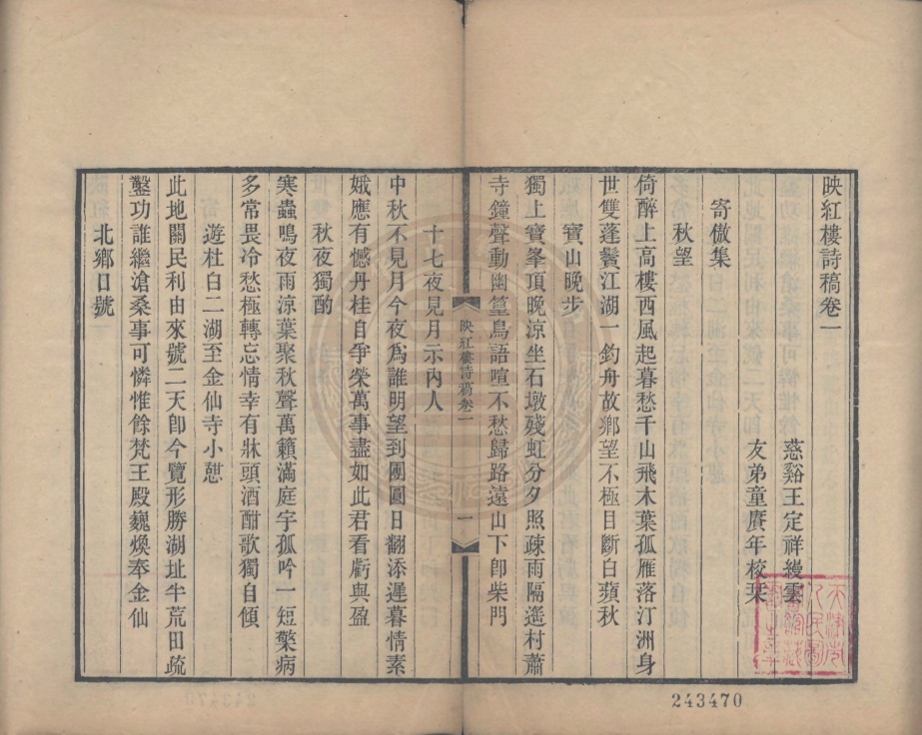 映紅樓詩稿卷一
慈谿王定祥縵雲
友弟童賡年校栞
寄傲集
秋望
倚醉上高樓西風起暮愁千山飛木葉孤雁落汀洲身
世雙蓬鬢江湖一釣舟故鄉望不極目斷白蘋秋
寶山晚步
獨上寶峯頂晚涼坐石墩殘虹分夕照疎雨隔遙村蕭
寺鐘聲動幽篁鳥語喧不愁歸路遠山下卽柴門
映紅樓詩稿卷一
一
十七夜見月示內人
中秋不見月今夜爲誰明望到團圓日翻添遲暮情素
娥應有憾丹桂自爭榮萬事盡如此君看虧與盈
秋夜獨酌
寒蟲鳴夜雨涼葉聚秋聲萬籟滿庭宇孤吟一短檠病
多常畏冷愁極轉忘情幸有牀頭酒酣歌獨自傾
遊杜白二湖至金仙寺小憩
此地關民利由來號二天卽今覽形勝湖址半荒田疏
鑿功誰繼滄桑事可憐惟餘梵王殿巍煥奉金仙
北鄉日號
天津市
人民圖
書館藏
243470